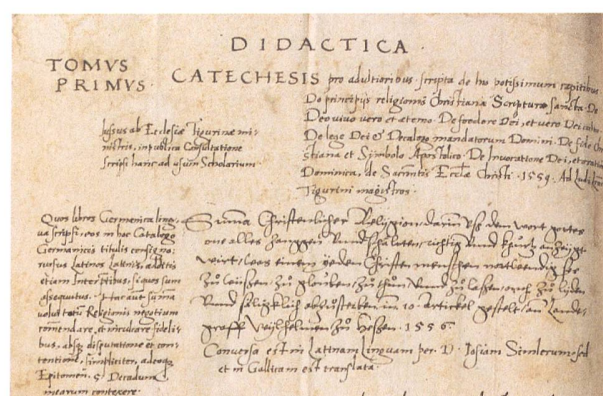 DIDACTICA.
TOMVS
PRIMVS.
CATECHESIS pro adultioribus scripta de his potissimum capitibus
De principijs religionis Christianæ Scriptura sancta. De
Deo vivo vero et æterno. De foedere Dei, et vero Dei cultu.
De lege Dei & Decalogo mandatorum Domini. De fide Chri
stiana et Symbolo Apostolico. De Invocatione Dei, et oratione
Dominica, de Sacramtis Ecclæ Christi. 1559. Ad
Tigurini magistros.
Iussus ab Ecclesiæ Tigurinæ mi-
nistris, in publica Consultatione
scripsi hanc ad usum Scholarium.
Quos libros Germanica ling-
va scripsi, eos in hoc Catalogo
Germanicis titulis consigno:
rursus Latinos Latinis, additis
etiam Interptibus, si quos sum
assequutus.
volui totū Religionis negotium
comendare, et inculcare fideli-
bus, absq; disputatione et con-
tentione, simpliciter, adeoq;
Epitomen. 5 Decadum
mearum contexere.
Summa Christenlicher Religion darin uss dem wort gottes
one alles zanggen und schälten, richtig und kurtz anzeigt
wirt / was einem yeden Christen menschen notwendig sye
zů wüssen, zů glouben, zů thůn und zů lassen, ouch zů lyden
und säligklich abzůsterben in 10. Artickel gestelt, an Land-
graff Wilhelmen zů Hessen. 1556.
Conversa est in Latinam linguam per D. Iosiam Simlerum: sed
et in Gallicam est translata.